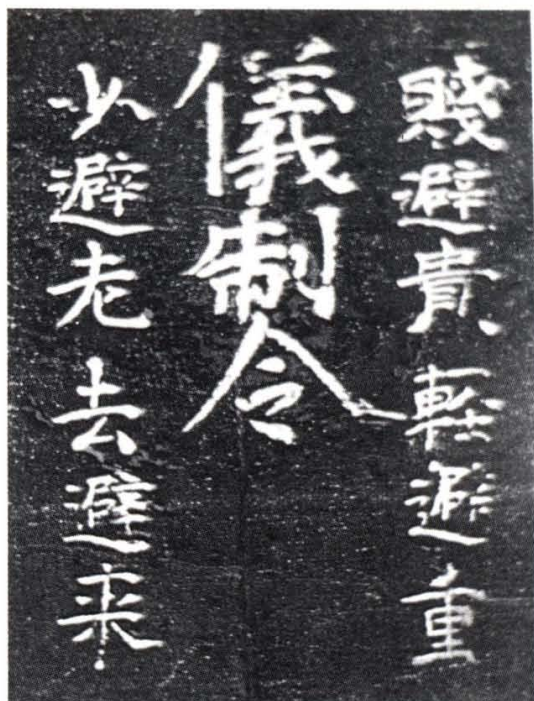 賤避貴 輕避重
儀制令
少避老 去避来